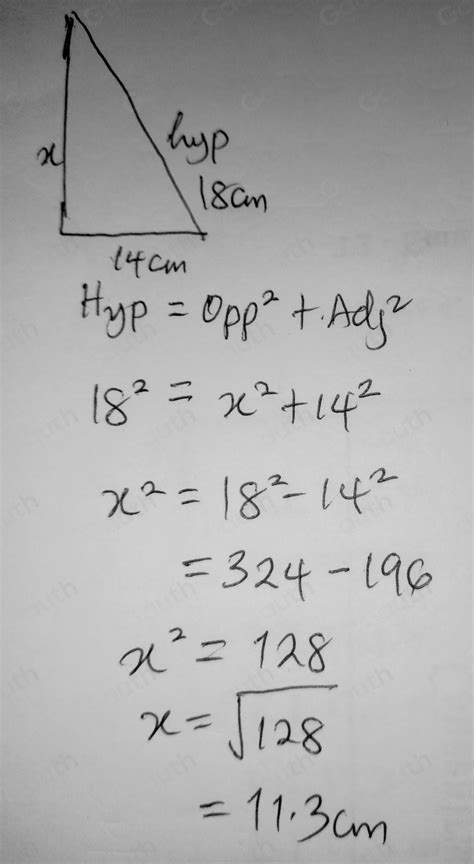 x
hyp
18cm
14cm
Hyp = Opp² + Adj²
18² = x² + 14²
x² = 18² - 14²
= 324 - 196
x² = 128
x = √128
= 11.3cm